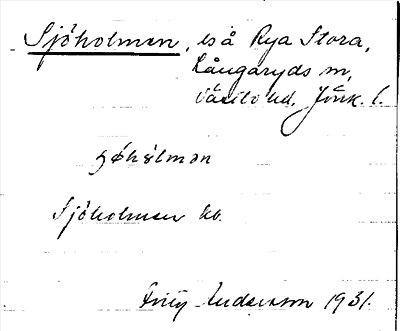 Sjöholmen, ls å Rya Stora,
Långaryds sn,
Västbo hd. Jönk. l.
Sjöholmen kb.
Fritz Anderson 1931.